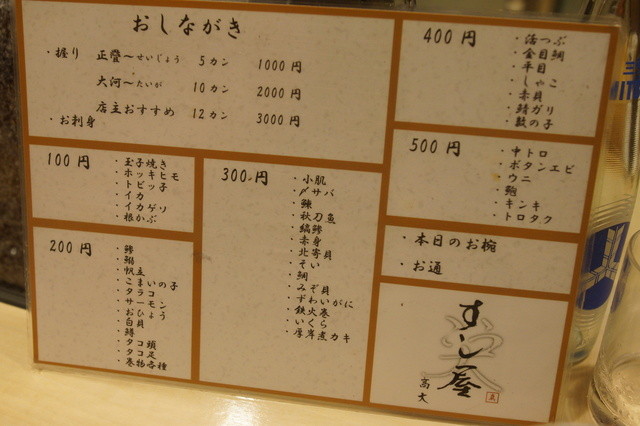 おしながき
・握り 正登〜せいじょう 5カン 1000円
大河〜たいが 10カン 2000円
店主おすすめ 12カン 3000円
・お刺身
100円
・玉子焼き
・ホッキヒモ
・トビッ子
・イカ
・イカゲソ
・根かぶ
200円
・帆立
・こまいの子
・タラコ
・サーモン
・おひょう
・白貝
・タコ頭
・タコ足
・巻物各種
300円
・小肌
・〆サバ
・秋刀魚
・縞鯵
・赤身
・北寄貝
・そい
・鯛
・みぞ貝
・ずわいがに
・鉄火巻
・いくら
・厚岸煮カキ
400円
・活つぶ
・金目鯛
・平目
・しゃこ
・赤貝
・鯖ガリ
・数の子
500円
・中トロ
・ボタンエビ
・ウニ
・鮑
・キンキ
・トロタク
・本日のお椀
・お通
すし屋
高大